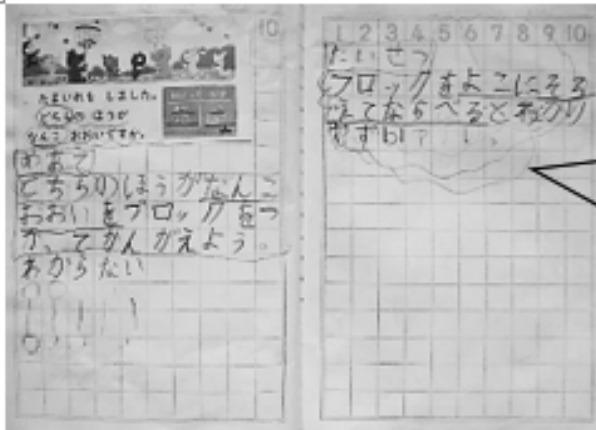 10
たまいれを しました。
どちらの ほうが
なんこ おおいですか。
めあて
どちらのほうがなんこ
おおいをブロックをつ
かってかんがえよう。
わからない
1 2 3 4 5 6 7 8 9 10
たいせつ
ブロックをよこにそろ
えてならべるとわかり